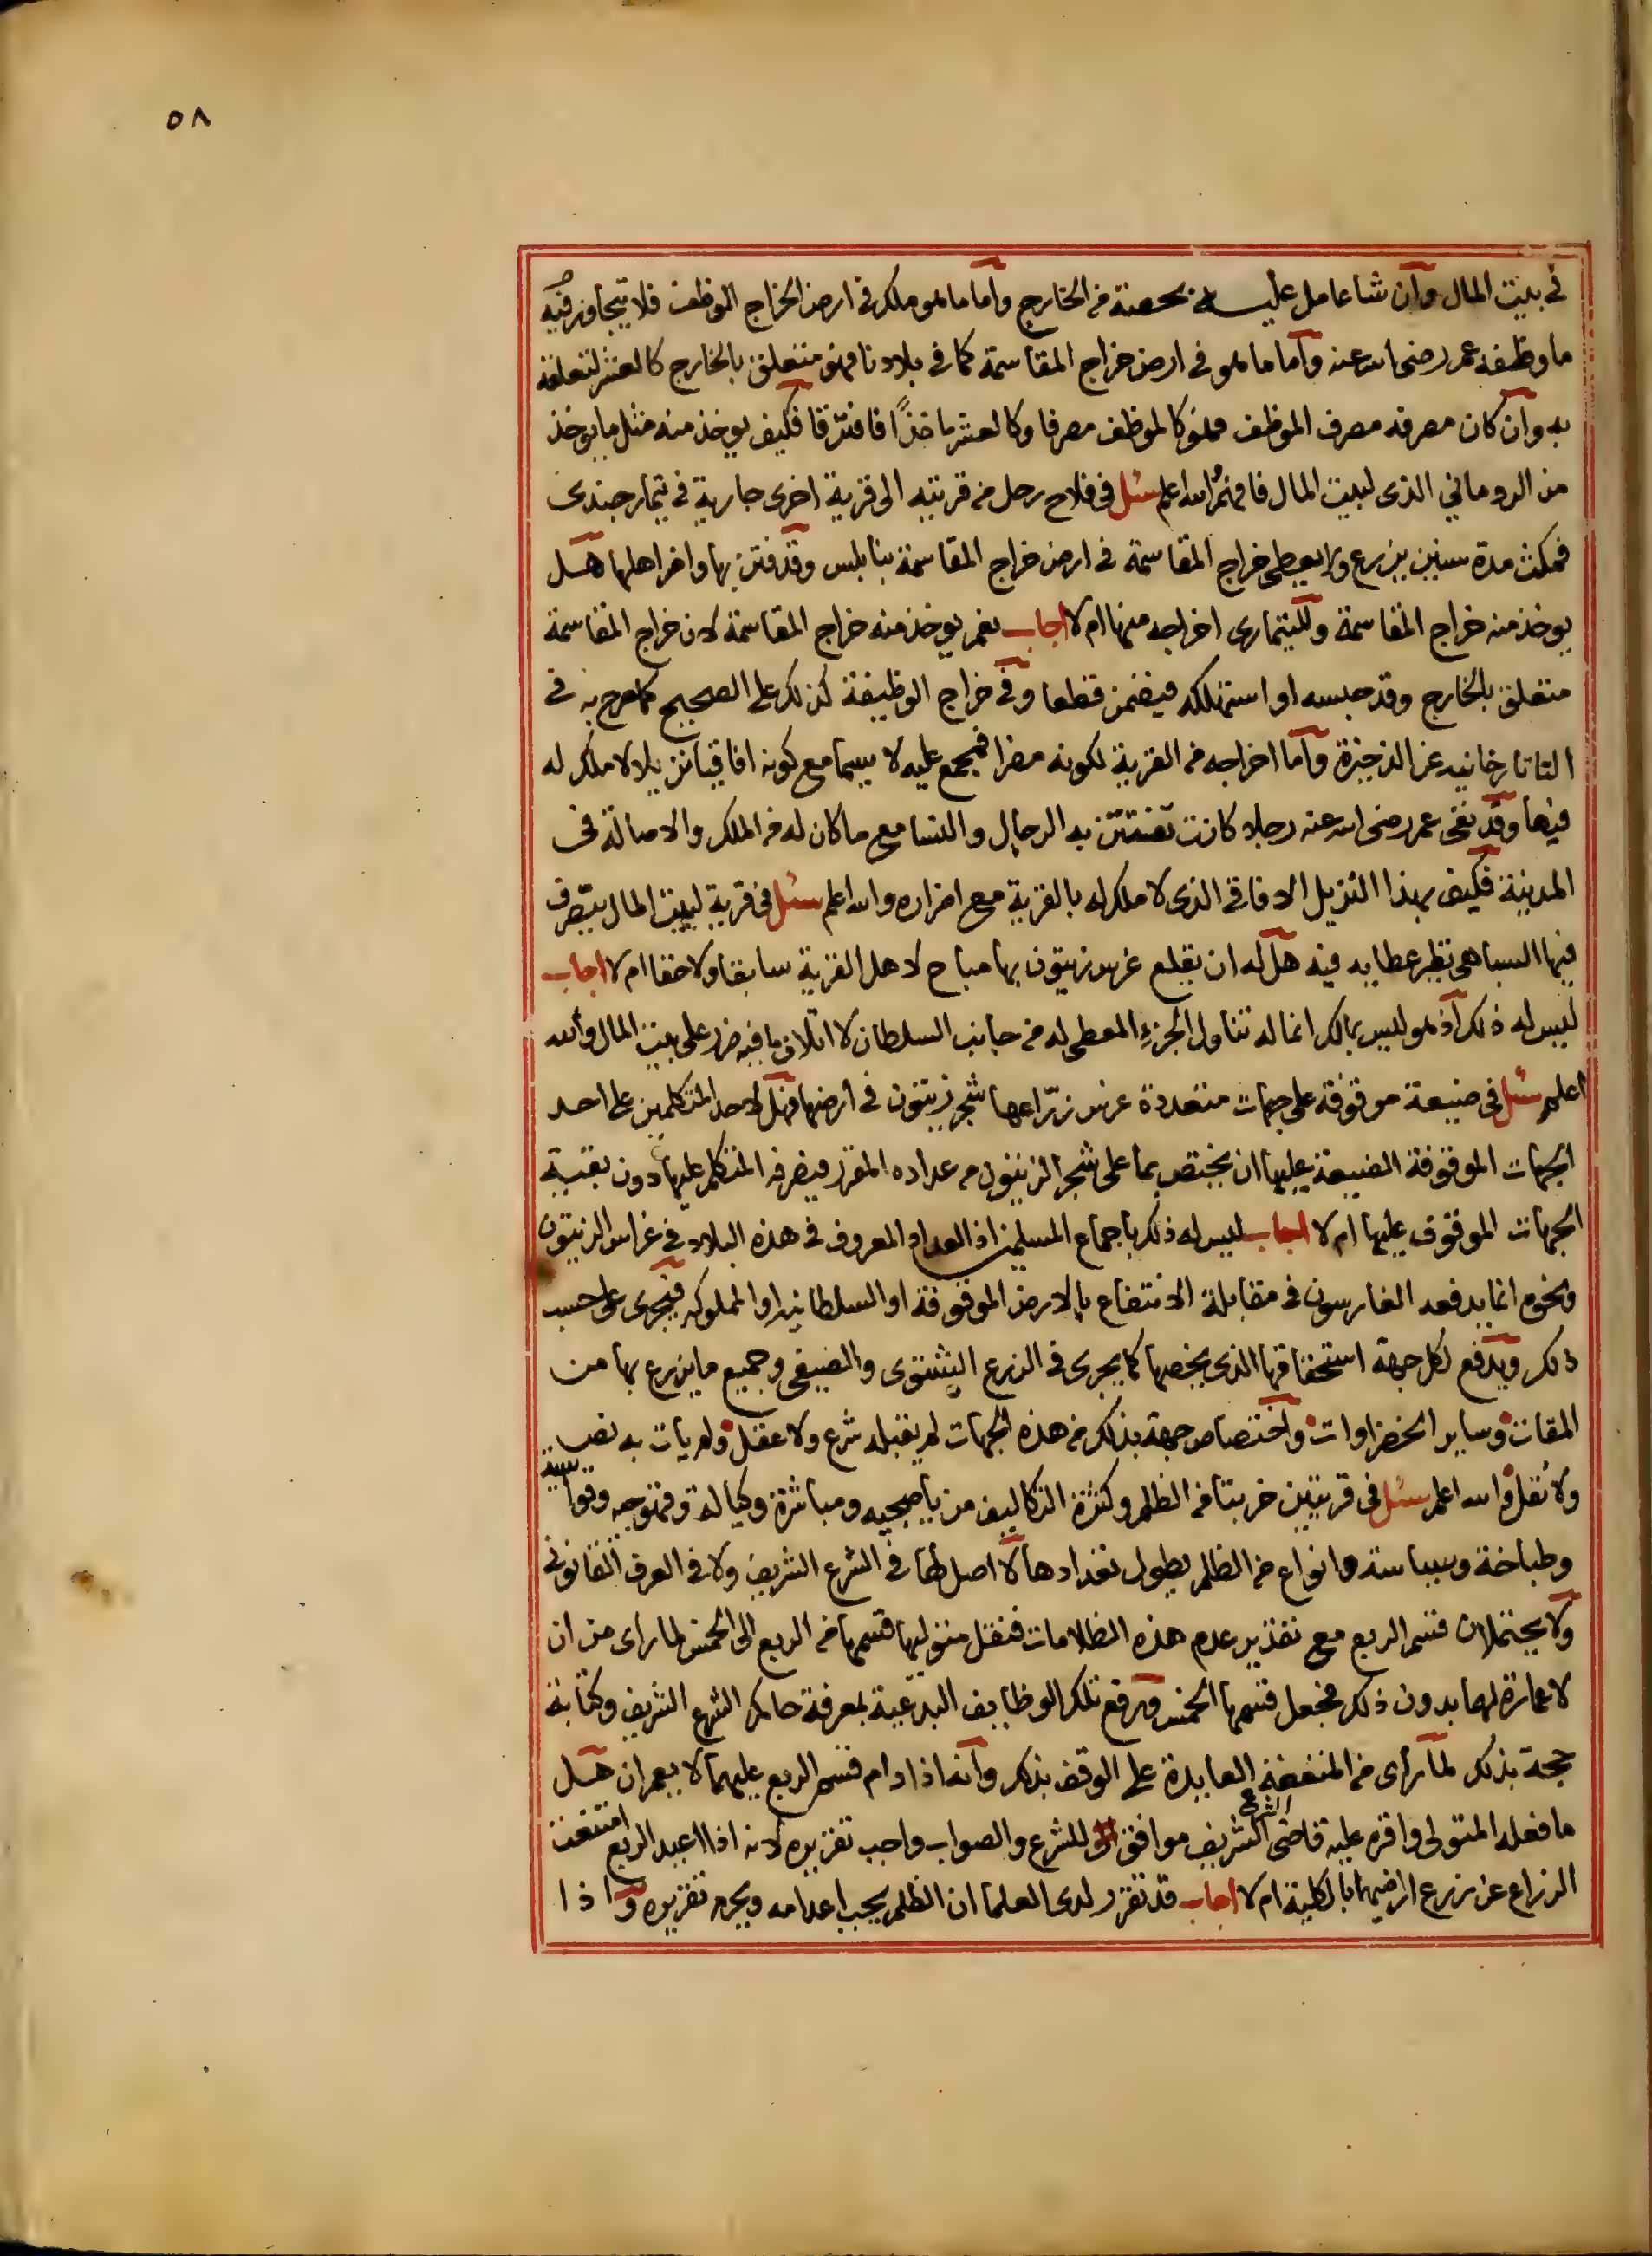 ٥٨
في بيت المال وان شا عامل عليه بحصة من الخارج واما ما هو ملك في ارض الخراج الموظف فلا يتجاوز فيه
ما وظفه عمر رضي الله عنه واما ما هو في ارض خراج المقاسمة كما في بلادنا فهو متعلق بالخارج كالعشر لتعلقه
به وان كان مصرفه مصرف الموظف فهو كالموظف مصرفا وكالعشر ماخذًا فافترقا فكيف يوخذ منه مثل ما يوخذ
من الروماني الذي لبيت المال فافهم والله اعلم سئل في فلاح رحل من قريته الى قرية اخرى جارية في تيمار جندي
فمكث مدة سنين يزرع ولا يعطي خراج المقاسمة في ارض خراج المقاسمة بنابلس وقد فتن بها واضر اهلها هل
يوخذ منه خراج المقاسمة وللتيماري اخراجه منها ام لا اجاب نعم يوخذ منه خراج المقاسمة لان خراج المقاسمة
متعلق بالخارج وقد حبسه او استهلكه فيضمن قطعا وفي خراج الوظيفة كذلك على الصحيح كما صرح به في
التاتارخانيه عن الذخيرة واما اخراجه من القرية لكونه مضرا فمجمع عليه لا سيما مع كونه افاقيا نزيلا لا ملك له
فيها وقد نفى عمر رضي الله عنه رجلا كانت تفتتن به الرجال والنسا مع ما كان له من الملك والاصالة في
المدينة فكيف بهذا النزيل الافاقي الذي لا ملك له بالقرية مع اضراره والله اعلم سئل في قرية لبيت المال يتصرف
فيها السباهي نظير عطايه فيه هل له ان يقلع غرس زيتون بها مباح لاهل القرية سابقا ولاحقا ام لا اجاب
ليس له ذلك اذ هو ليس بمالك انما له تناول الجزء المعطى له من جانب السلطان لا اتلاف ما فيه ضرر على بيت المال والله
اعلم سئل في ضيعة موقوفة على جهات متعددة غرس زرّاعها شجر زيتون في ارضها فهل لاحد المتكلمين على احد
الجهات الموقوفة الضيعة عليها ان يختص بما على شجر الزيتون من عداده المقرر فيصرفه المتكلم عليها دون بقية
الجهات الموقوف عليها ام لا اجاب ليس له ذلك باجماع المسلمين اذ العداد المعروف في هذه البلاد في غراس الزيتون
ونحوه انما يدفعه الغارسون في مقابلة الانتفاع بالارض الموقوفة او السلطانيه او المملوكه فيجرى على حسب
ذلك ويدفع لكل جهة استحقاقها الذي يخصها كما يجرى في الزرع الشتوى والصيفى وجميع ما يزرع بها من
المقات وساير الخضراوات واختصاص جهة بذلك من هذه الجهات لم يقبله شرع ولا عقل ولم يات به نص
ولا نقل والله اعلم سئل في قريتين خربتا من الظلم وكثرة التكاليف من ياصحيه ومباشرة وكيالة وقهوجيه وقواسيه
وطباخة وسياسة وانواع من الظلم يطول تعدادها لا اصل لها في الشرع الشريف ولا في العرف القانوني
ولا يحتملان قسم الربع مع تقدير عدم هذه الظلامات فنقل متوليها قسمها من الربع الى الخمس لما راى من ان
لا عمارة لهما بدون ذلك فجعل قسمها الخمس ورفع تلك الوظايف البدعية بمعرفة حاكم الشرع الشريف وكتابة
حجة بذلك لما راى من المنفعة العايدة على الوقف بذلك وانه اذا دام قسم الربع عليهما لا يعمران هل
ما فعله المتولى واقره عليه قاضى الشرع الشريف موافق للشرع والصواب واجب تقريره لانه اذا اعيد الربع امتنعت
الزراع عن زرع اراضيها بالكلية ام لا اجاب قد تقرر لدى العلما ان الظلم يجب اعدامه ويحرم تقريره واذا